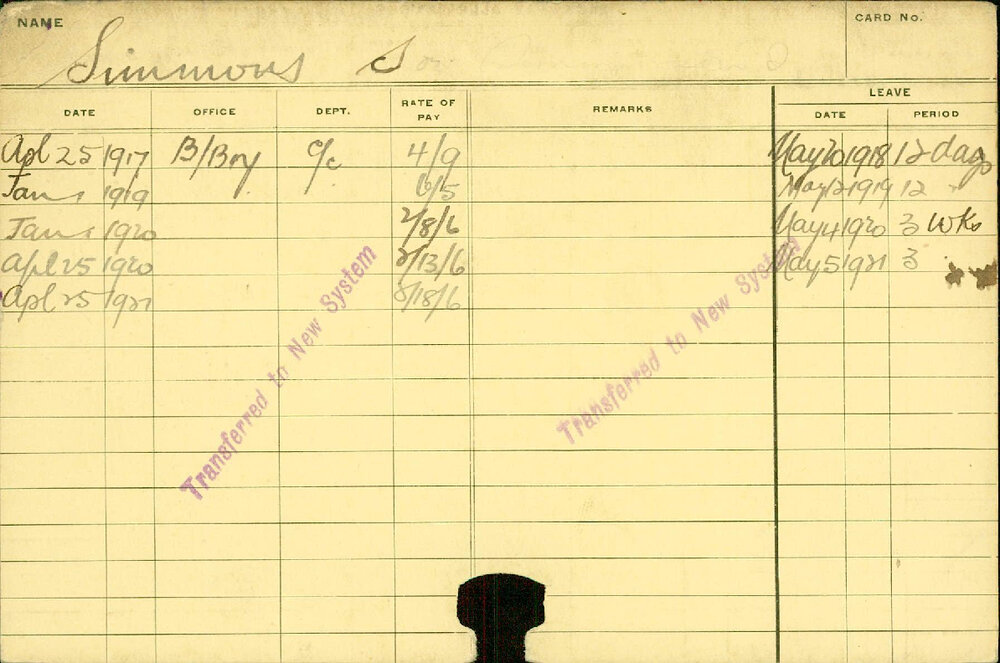 NAME
CARD No.
Simmons S
LEAVE
DATE OFFICE DEPT. RATE OF PAY REMARKS DATE PERIOD
Apl 25 1917 B/Boy C/c 4/9 May 20 1918 12 days
Jan 1 1919 6/5 May 12 1919 12 "
Jan 1 1920 2/8/6 May 4 1920 3 Wks
Apl 25 1920 2/13/6 May 5 1921 3
Apl 25 1921 2/18/6
Transferred to New System
Transferred to New System